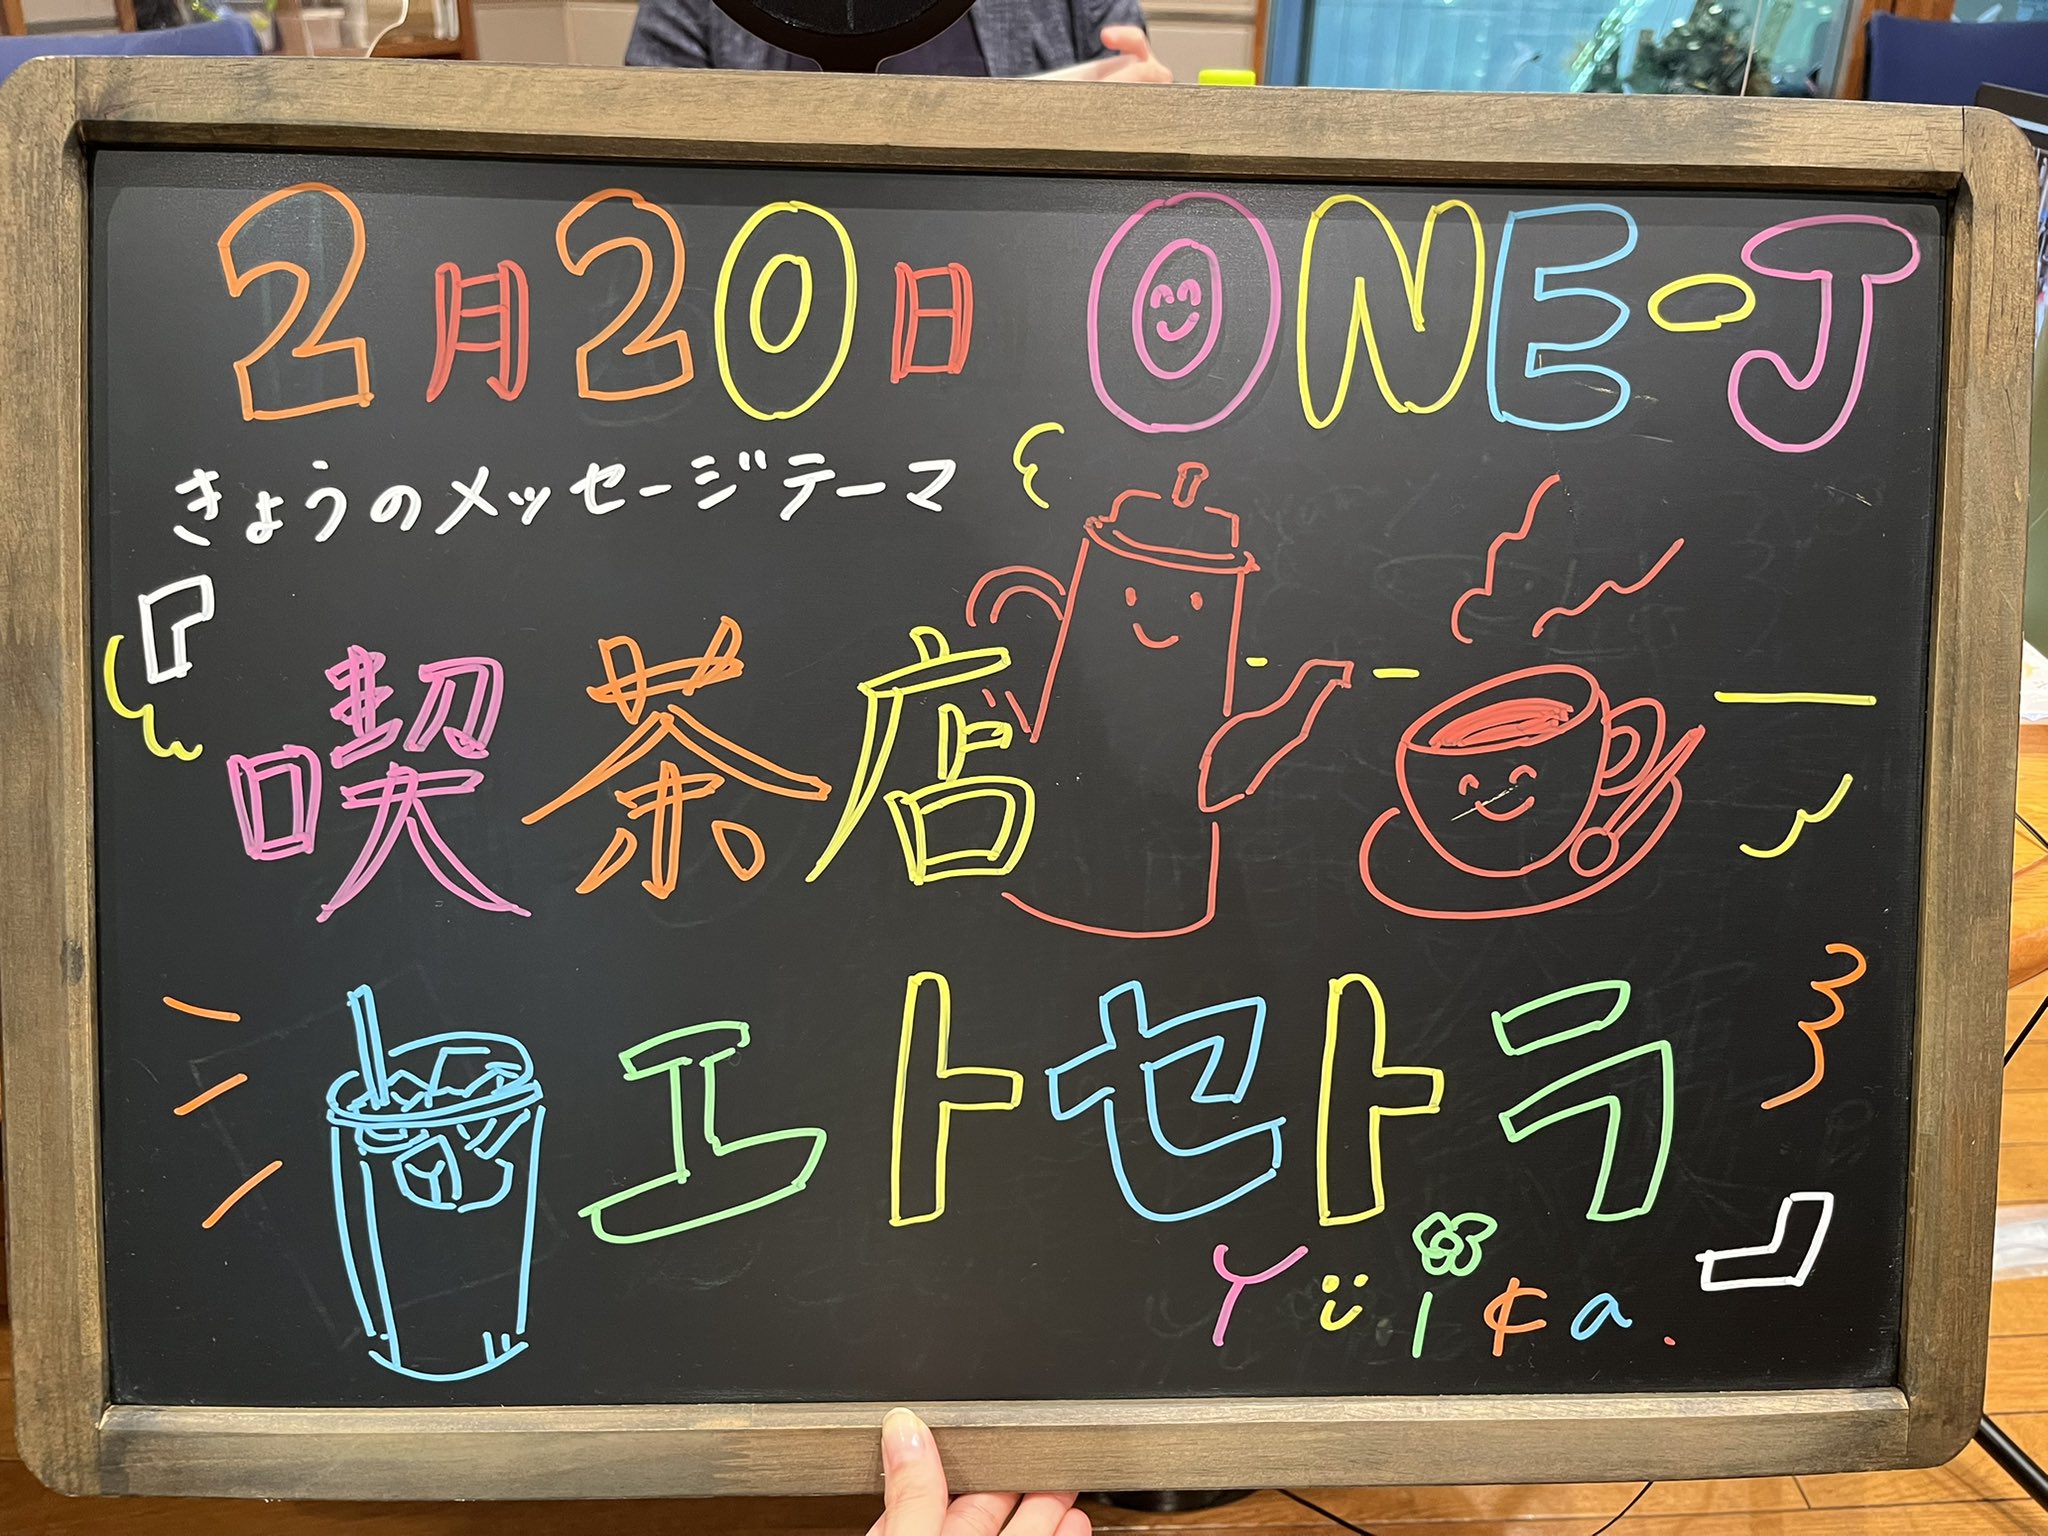 2月20日 ONE-J
きょうのメッセージテーマ
『喫茶店
エトセトラ』
Yuika.